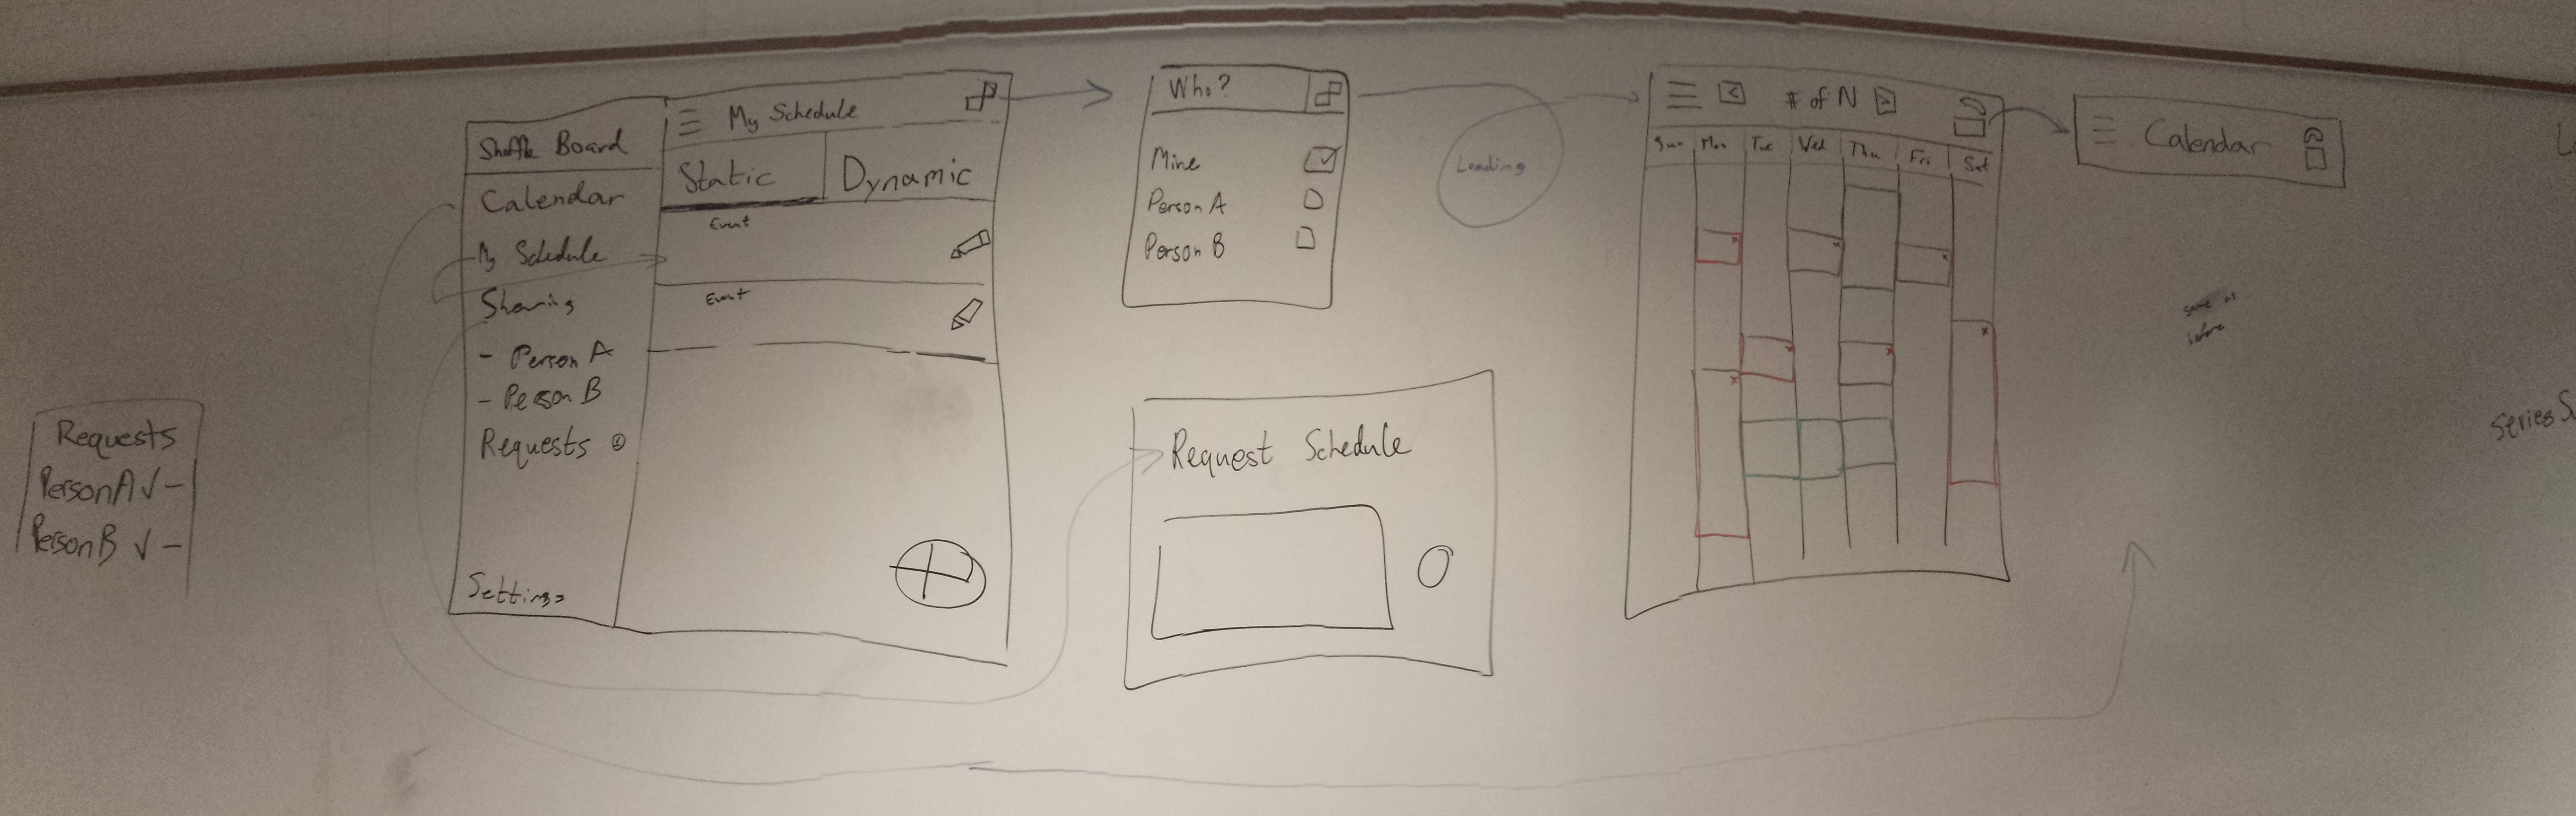 Requests
Person A √ -
Person B √ -
Shuffle Board
Calendar
My Schedule
Sharing
- Person A
- Person B
Requests
Settings
My Schedule
Static
Dynamic
Event
Event
Who?
Mine
Person A
Person B
Loading
Request Schedule
< # of N >
Sun Mon Tue Wed Thu Fri Sat
Calendar
same as
before
Series